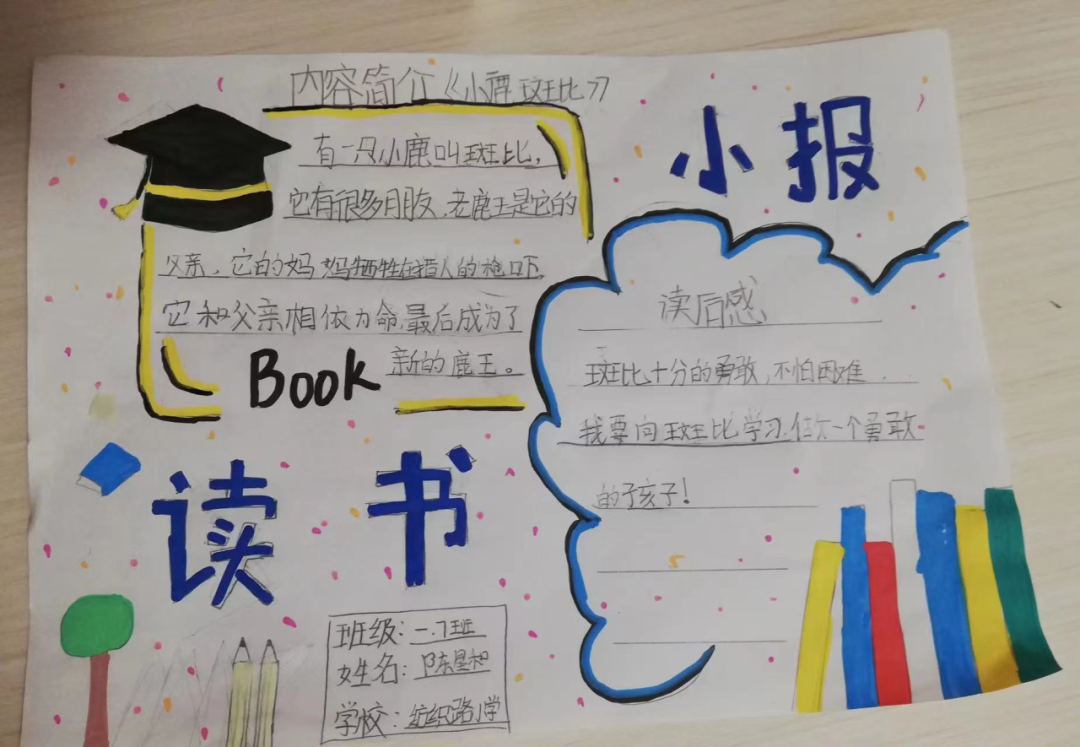 内容简介《小鹿斑比》
有一只小鹿叫斑比，
它有很多朋友，老鹿王是它的
父亲，它的妈妈牺牲在猎人的枪口下，
它和父亲相依为命，最后成为了
新的鹿王。
Book
读书
小报
读后感
斑比十分的勇敢，不怕困难，
我要向斑比学习，做一个勇敢
的好孩子！
班级：一.7班
姓名：陈星和
学校：纺织路小学